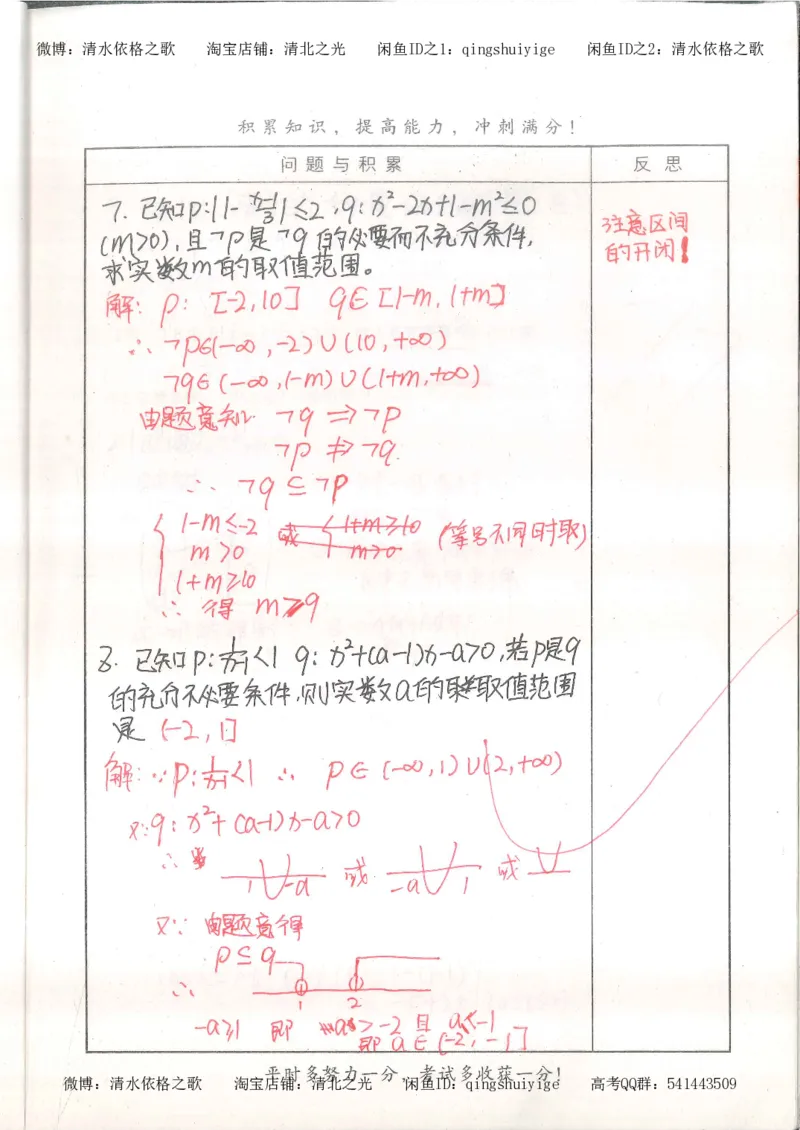 微博：清水依格之歌 淘宝店铺：清北之光 闲鱼ID之1：qingshuiyige 闲鱼ID之2：清水依格之歌
积累知识，提高能力，冲刺满分！
问题与积累 反思
7. 已知p:|1-(x-1)/3|≤2,q:x²-2x+1-m²≤0
(m>0),且¬p是¬q的必要而不充分条件,
求实数m的取值范围。
注意区间
的开闭！
解: p: [-2,10] q∈[1-m,1+m]
∴ ¬p∈(-∞,-2)∪(10,+∞)
¬q∈(-∞,1-m)∪(1+m,+∞)
由题意知 ¬q⇒¬p
¬p⇏¬q.
∴ ¬q⊆¬p
{1-m≤-2 或 {1+m≥10 (等号不同时取)
m>0 m>0
1+m≥10
∴ 得 m≥9
8. 已知p:1/(x-1)<1 q: x²+(a-1)x-a>0,若p是q
的充分不必要条件,则实数a的取值范围
是 (-2,1]
解:∵p:1/(x-1)<1 ∴ p∈(-∞,1)∪(2,+∞)
又:q:x²+(a-1)x-a>0
∴ 当
1 -a 或 -a 1 或
又∵ 由题意得
p⊆q
∴
1 2
-a≥1 即 a>-2 且 a≤-1
即 a∈(-2,-1]
平时多努力一分，考试多收获一分！
微博：清水依格之歌 淘宝店铺：清北之光 闲鱼ID：qingshuiyige 高考QQ群：541443509